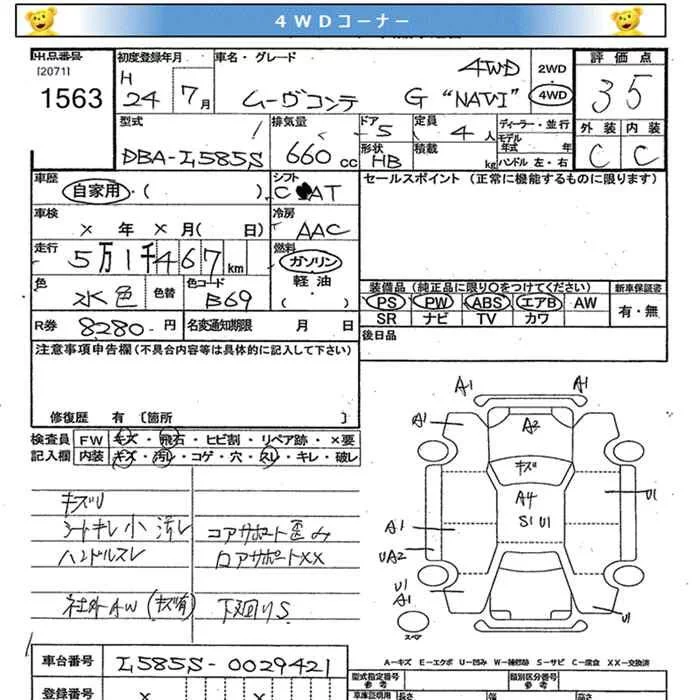 4WDコーナー
出品番号
[2071]
1563
初度登録年月
H
24 7月
車名・グレード
ムーヴコンテ G "NAVI" 4WD
2WD
4WD
評価点
35
外装 内装
C C
型式
DBA-L585S
排気量
660cc
ドア
5
定員
4人
形状
HB
積載
kg
ディーラー・並行
モデル
年式 年
ハンドル 左・右
車歴
自家用・( )
シフト
C AT
車検
× 年 × 月( 日)
冷房
AAC
走行
5万1千467km
燃料
ガソリン
軽油
( )
色
水色
色替
色コード
B69
R券 8280-円
名変通知期限 月 日
セールスポイント(正常に機能するものに限ります)
装備品(純正品に限り○をつけてください)
PS PW ABS エアB AW
SR ナビ TV カワ
新車保証書
有・無
後日品
注意事項申告欄(不具合内容等は具体的に記入して下さい)
修復歴 有 〔箇所 〕
検査員
記入欄
FW キズ・飛石・ヒビ割・リペア跡・×要
内装 キズ・汚れ・コゲ・穴・スレ・キレ・破レ
キズU
シートキレ小 汚レ
ハンドルスレ
社外AW(キズ有)
コアサポート歪み
ロアサポートXX
下廻りS
A1 A1
A1
A2
キズ
A4
S1 U1
U1
A1
UA2
U1
A1
U1
スペア
A-キズ E-エクボ U-凹み W-補修跡 S-サビ C-腐食 XX-交換済
車台番号 L585S-0029421
登録番号 × ×
型式指定番号
参考
類別区分番号
参考
車庫証明用
長さ 幅 高さ